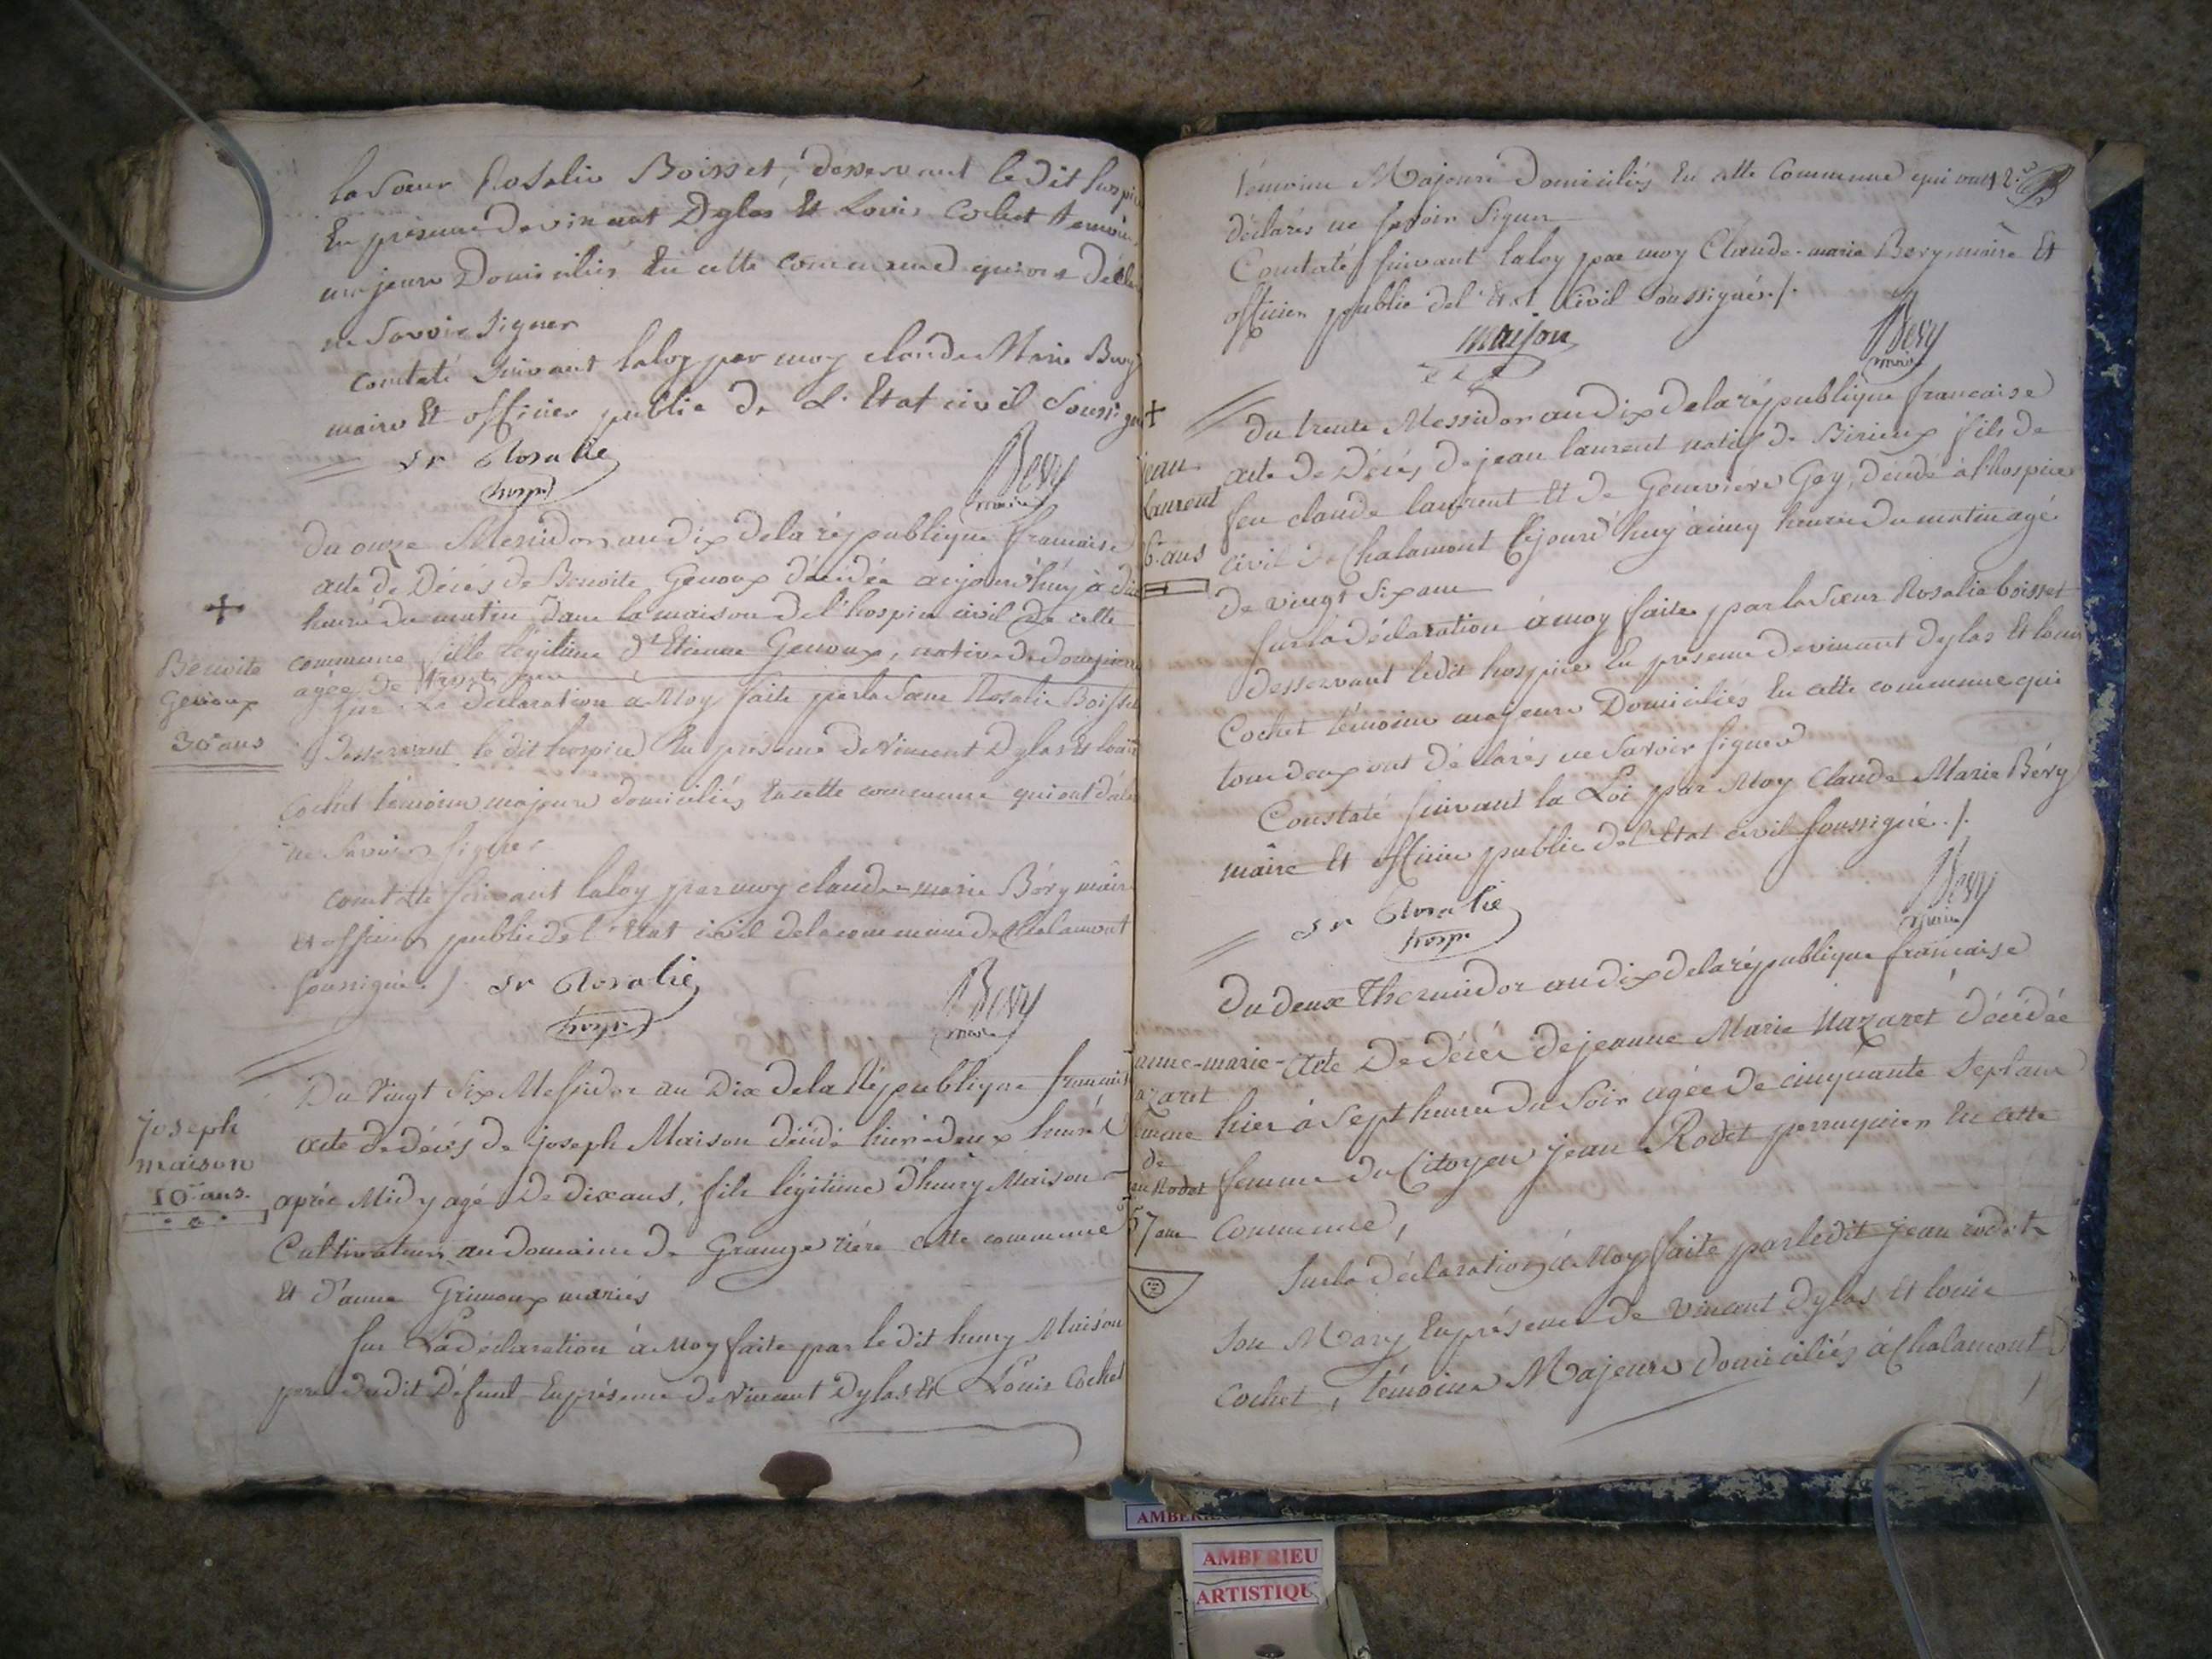 la Sœur Rosalie Boisset, desservant le dit hospi
En présence de vincent Dylas Et Louis Cochet temoin
majeurs Domiciliés En cette commune qui ont décla
ne Savoir Signer
constaté Suivant laloy par moy claude Marie Bery
maire Et officier public de L'Etat civil Soussigné
sr Rosalie
hosp.
Bery
maire
du onze Messidor an dix dela république francaise
acte de Décés de Benoite Genoux décédée aujourd'huy à
heure du matin dans la maison del'hospice civil de cette
commune fille légitime d'Etienne Genoux, native de dompierre
agée de trente ans
Benoite
Genoux
30 ans
Sur La déclaration à Moy faite par la Sœur Rosalie Boisset
desservant le dit hospice En présence de Vincent Dylas Et louis
Cochet témoins majeurs domiciliés En cette commune qui ont décla
ne Savoir Signer
constaté suivant laloy par moy claude-marie Béry maire
et officier public de l'Etat civil dela commune de Chalamont
soussigné ./.
sr Rosalie
hosp.
Bery
maire
Du Vingt Six Messidor an Dix dela République francais
Joseph
maison
10 ans.
acte de décés de joseph Maison décédé hier à deux heures
après Midy agé De dix ans, fils légitime d'henry Maison
Cultivateur au domaine de Grange riére cette commune
Et d'anne Grimoux mariés
Sur La déclaration à Moy faite par le dit henry Maison
pere dudit Défunt En présence de Vincent Dylas Et Louis Cochet
témoins Majeurs Domiciliés En cette Commune qui ont
déclarés ne Savoir Signer
Constaté suivant laloy par moy Claude-marie Bery maire Et
officier public del'Etat Civil Soussigné ./.
maison
Bery
maire
du trente Messidor an dix dela république francaise
jean
laurent
6 ans
acte de Décés de jean laurent natif de Birieux fils de
feu claude laurent Et de Genevieve Gey, décédé à l'hospice
civil de Chalamont Cejourd'huy à cinq heures du matin agé
de vingt Six ans
Sur la déclaration à moy faite par la Sœur Rosalie boisset
desservant ledit hospice En présence de vincent dylas Et louis
Cochet témoins majeurs Domiciliés En cette commune qui
tous deux ont déclarés ne Savoir signer
Constaté suivant la Loi par Moy Claude Marie Béry
maire Et officier public del'Etat civil soussigné ./.
sr Rosalie
hosp.
Bery
maire
Du deux Thermidor an dix dela république francaise
anne-marie
azaret
femme
de
an Rodet
57 ans
Acte De décés de jeanne Marie Nazaret décédée
hier à Sept heures du Soir agée De cinquante Sept ans
femme du Citoyen jean Rodet perruquier En cette
Commune,
Sur la déclaration à Moy faite par ledit jean rodet
Son Mary En présence de Vincent Dylas Et louis
Cochet, témoins Majeurs domiciliés à Chalamont
AMBERIEU
ARTISTIQU